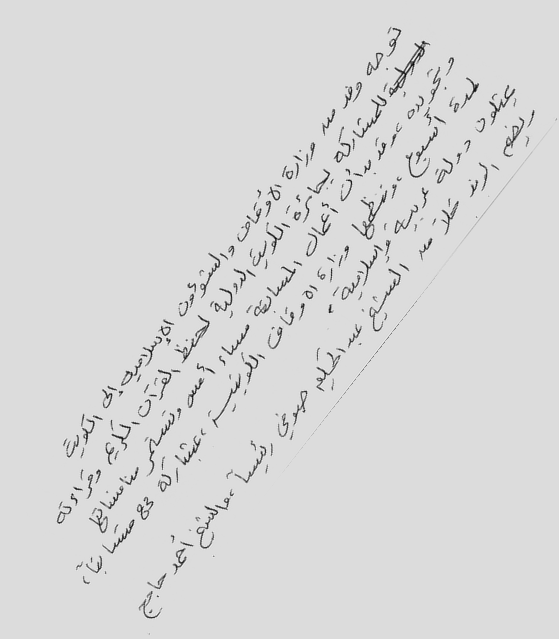 توجه وفد من وزارة الأوقاف والشؤون الإسلامية إلى الكويت
للمشاركة بجائزة الكويت الدولية لحفظ القرآن الكريم وقراءته
وتجويده، وقد بدأت أعمال المسابقة مساء أمس وتستمر منافساتها
لمدة أسبوع، وتنظمها وزارة الاوقاف الكويتية، بمشاركة متسابقا،
يمثلون دولة عربية وإسلامية،
ويضم الوفد كلا من الشيخ عبد الحكيم رئيسا، والشيخ أحمد حاج